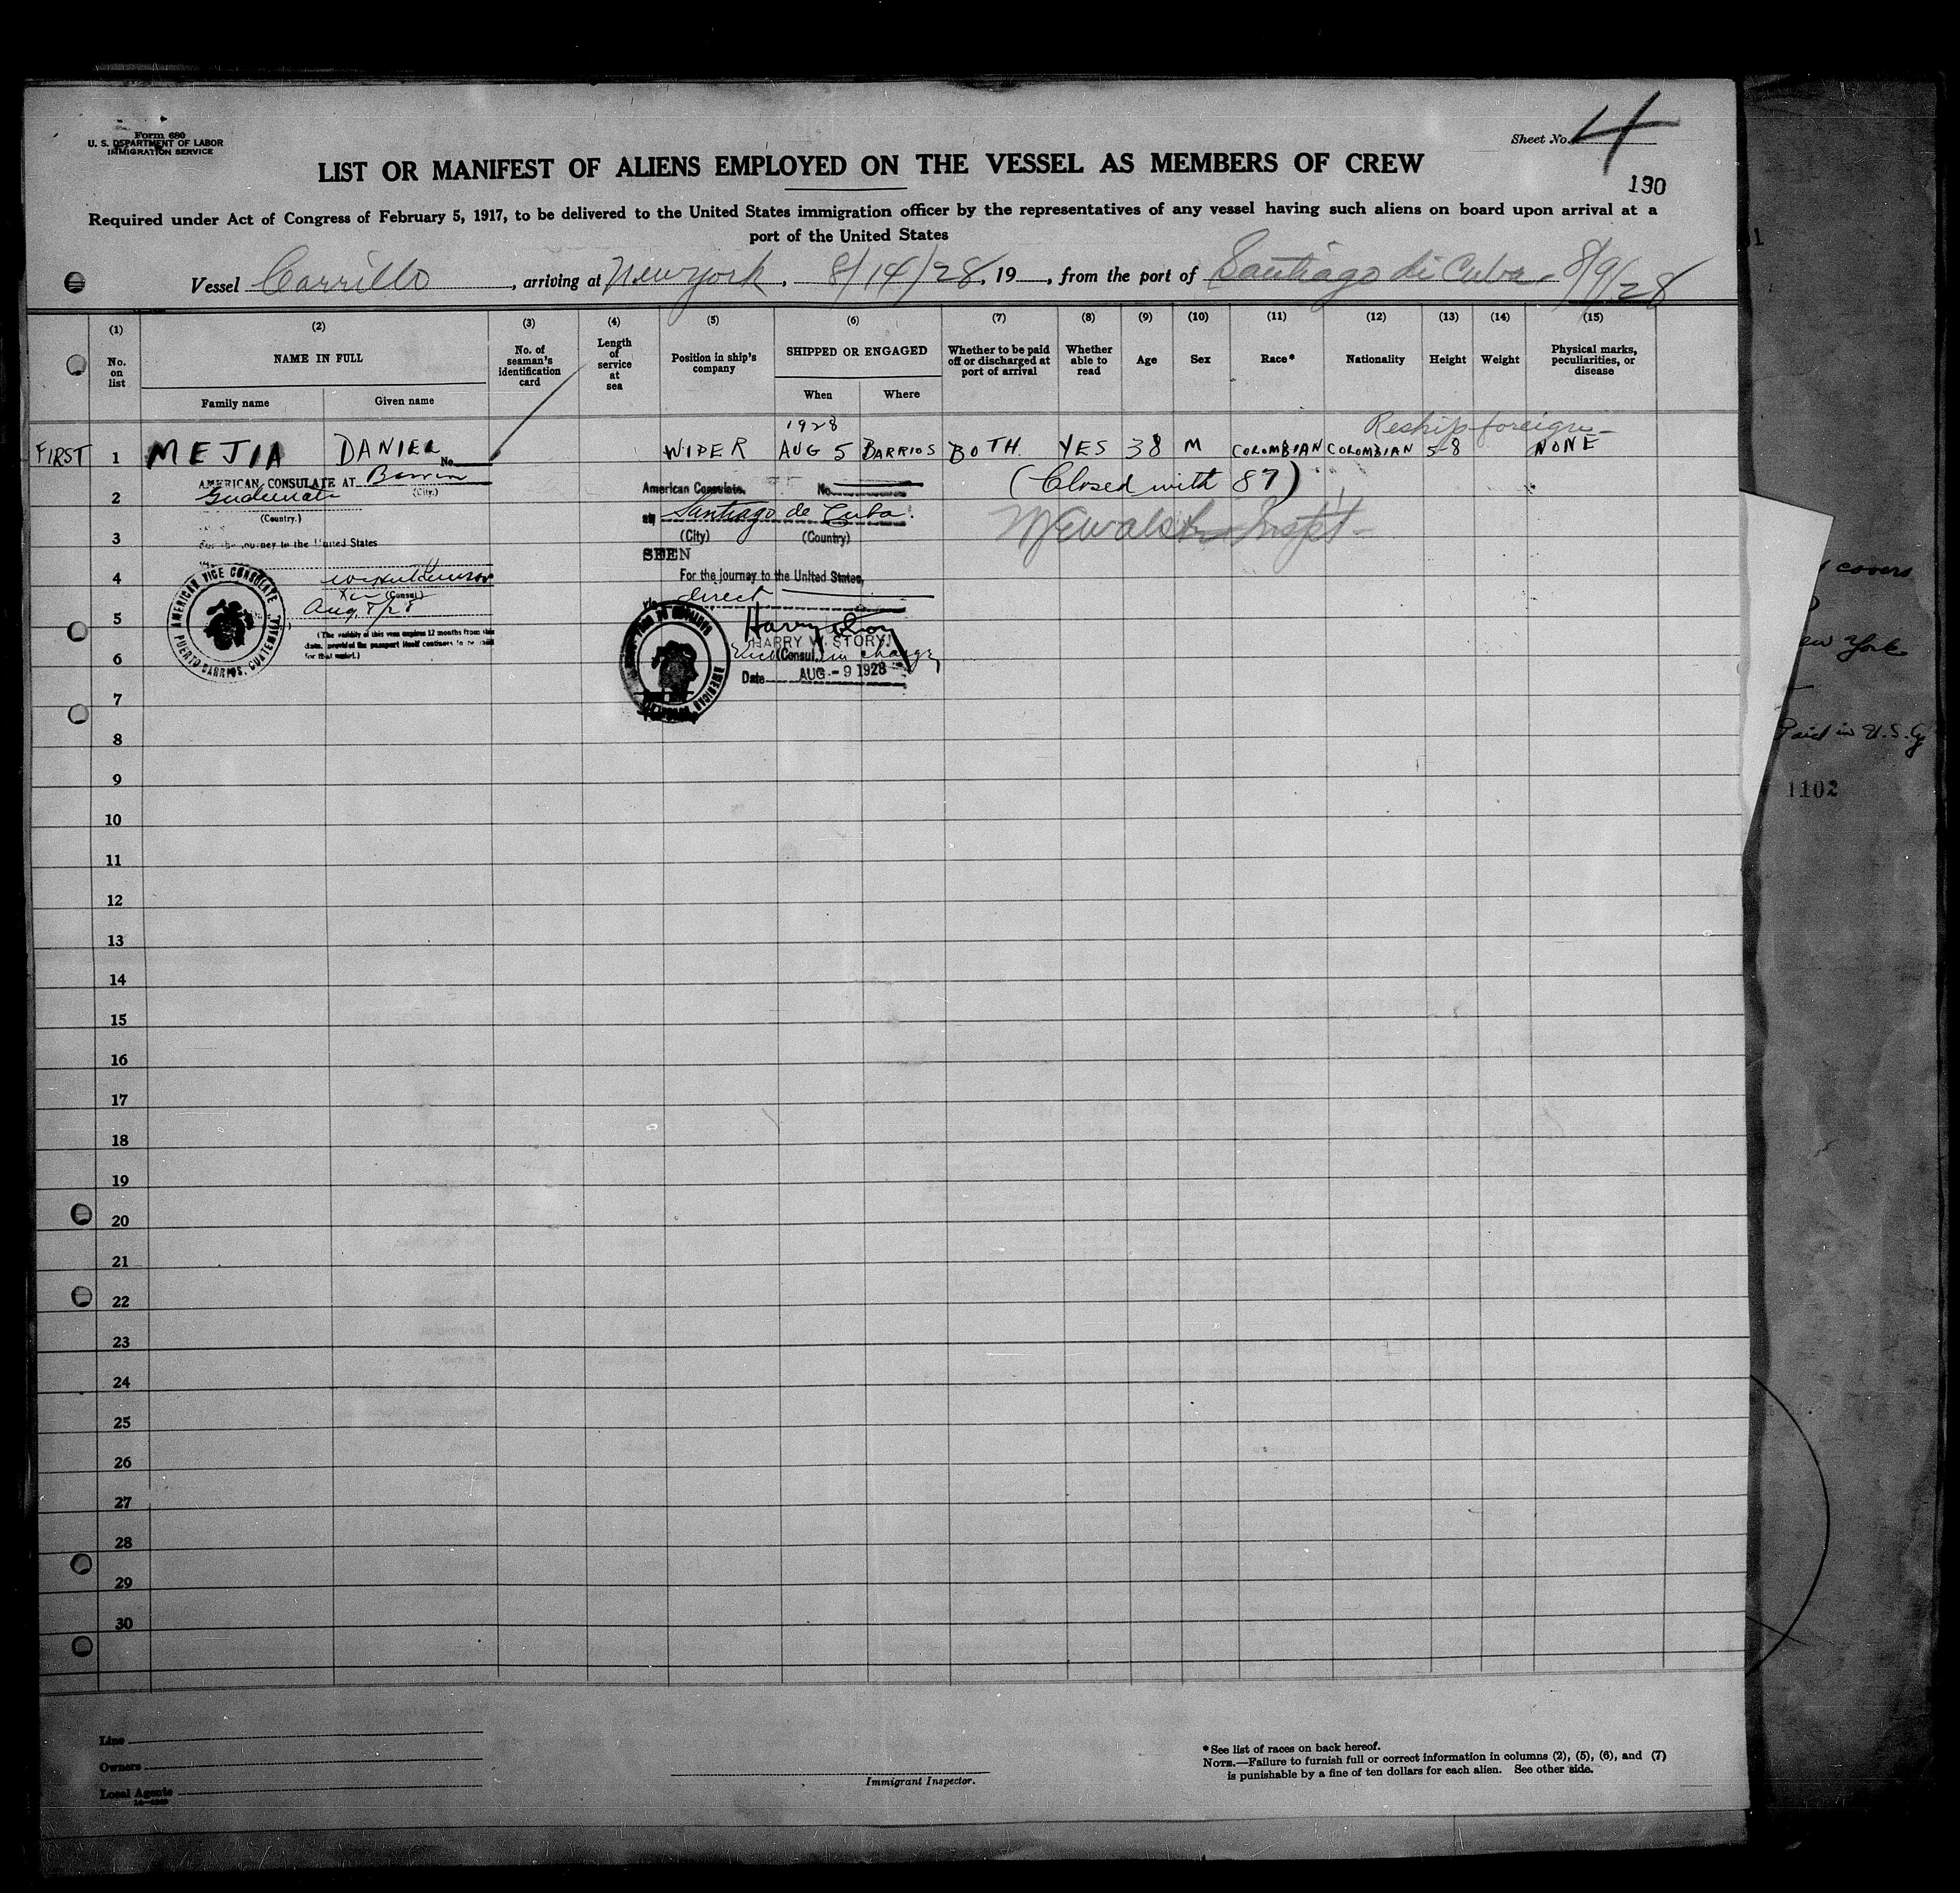 Form 680
U. S. DEPARTMENT OF LABOR
IMMIGRATION SERVICE
Sheet No. 4
LIST OR MANIFEST OF ALIENS EMPLOYED ON THE VESSEL AS MEMBERS OF CREW
190
Required under Act of Congress of February 5, 1917, to be delivered to the United States immigration officer by the representatives of any vessel having such aliens on board upon arrival at a
port of the United States
Vessel Carrillo, arriving at New york, 8/14/28, 19, from the port of Santiago di Cuba - 8/9/28
(1) (2) (3) (4) (5) (6) (7) (8) (9) (10) (11) (12) (13) (14) (15)
No. on list
NAME IN FULL
Family name Given name
No. of seaman's identification card
Length of service at sea
Position in ship's company
SHIPPED OR ENGAGED
When Where
Whether to be paid off or discharged at port of arrival
Whether able to read
Age
Sex
Race*
Nationality
Height
Weight
Physical marks, peculiarities, or disease
1928
Reship foreign -
FIRST 1 MEJIA DANIEL WIPER AUG 5 BARRIOS BOTH YES 38 M COLOMBIAN COLOMBIAN 5-8 NONE
No.
AMERICAN CONSULATE AT
(City.)
(Country.)
For the journey to the United States
(Consul)
Aug. 5/28
(The validity of this visa expires 12 months from this
date, provided the passport itself continues to be valid
for that period.)
AMERICAN VICE CONSULATE
PUERTO BARRIOS, GUATEMALA
American Consulate, No.
at Santiago de Cuba.
(City) (Country)
SEEN
For the journey to the United States,
via direct
Harry Story
HARRY W. STORY
Vice (Consul) in charge
Date AUG - 9 1928
AMERICAN
(Closed with 87)
2
3
4
5
6
7
8
9
10
11
12
13
14
15
16
17
18
19
20
21
22
23
24
25
26
27
28
29
30
Line
Owners
Local Agents
Immigrant Inspector.
* See list of races on back hereof.
NOTE.—Failure to furnish full or correct information in columns (2), (5), (6), and (7)
is punishable by a fine of ten dollars for each alien. See other side.
covers
ew York
Paid in U.S. Cy
1102